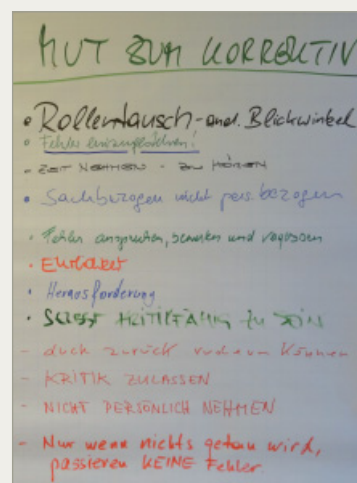 MUT ZUM KORREKTIV
• Rollentausch - and. Blickwinkel
• Fehler einzugestehen!
- ZEIT NEHMEN - ZU HÖREN
• Sachbezogen nicht pers. bezogen
• Fehler ansprechen, und vergessen
• Ehrlichkeit
• Herausforderung
• SELBST KRITIKFÄHIG ZU SEIN
- auch zurück rudern können
- KRITIK ZULASSEN
- NICHT PERSÖNLICH NEHMEN
- Nur wenn nichts getan wird,
passieren KEINE Fehler.